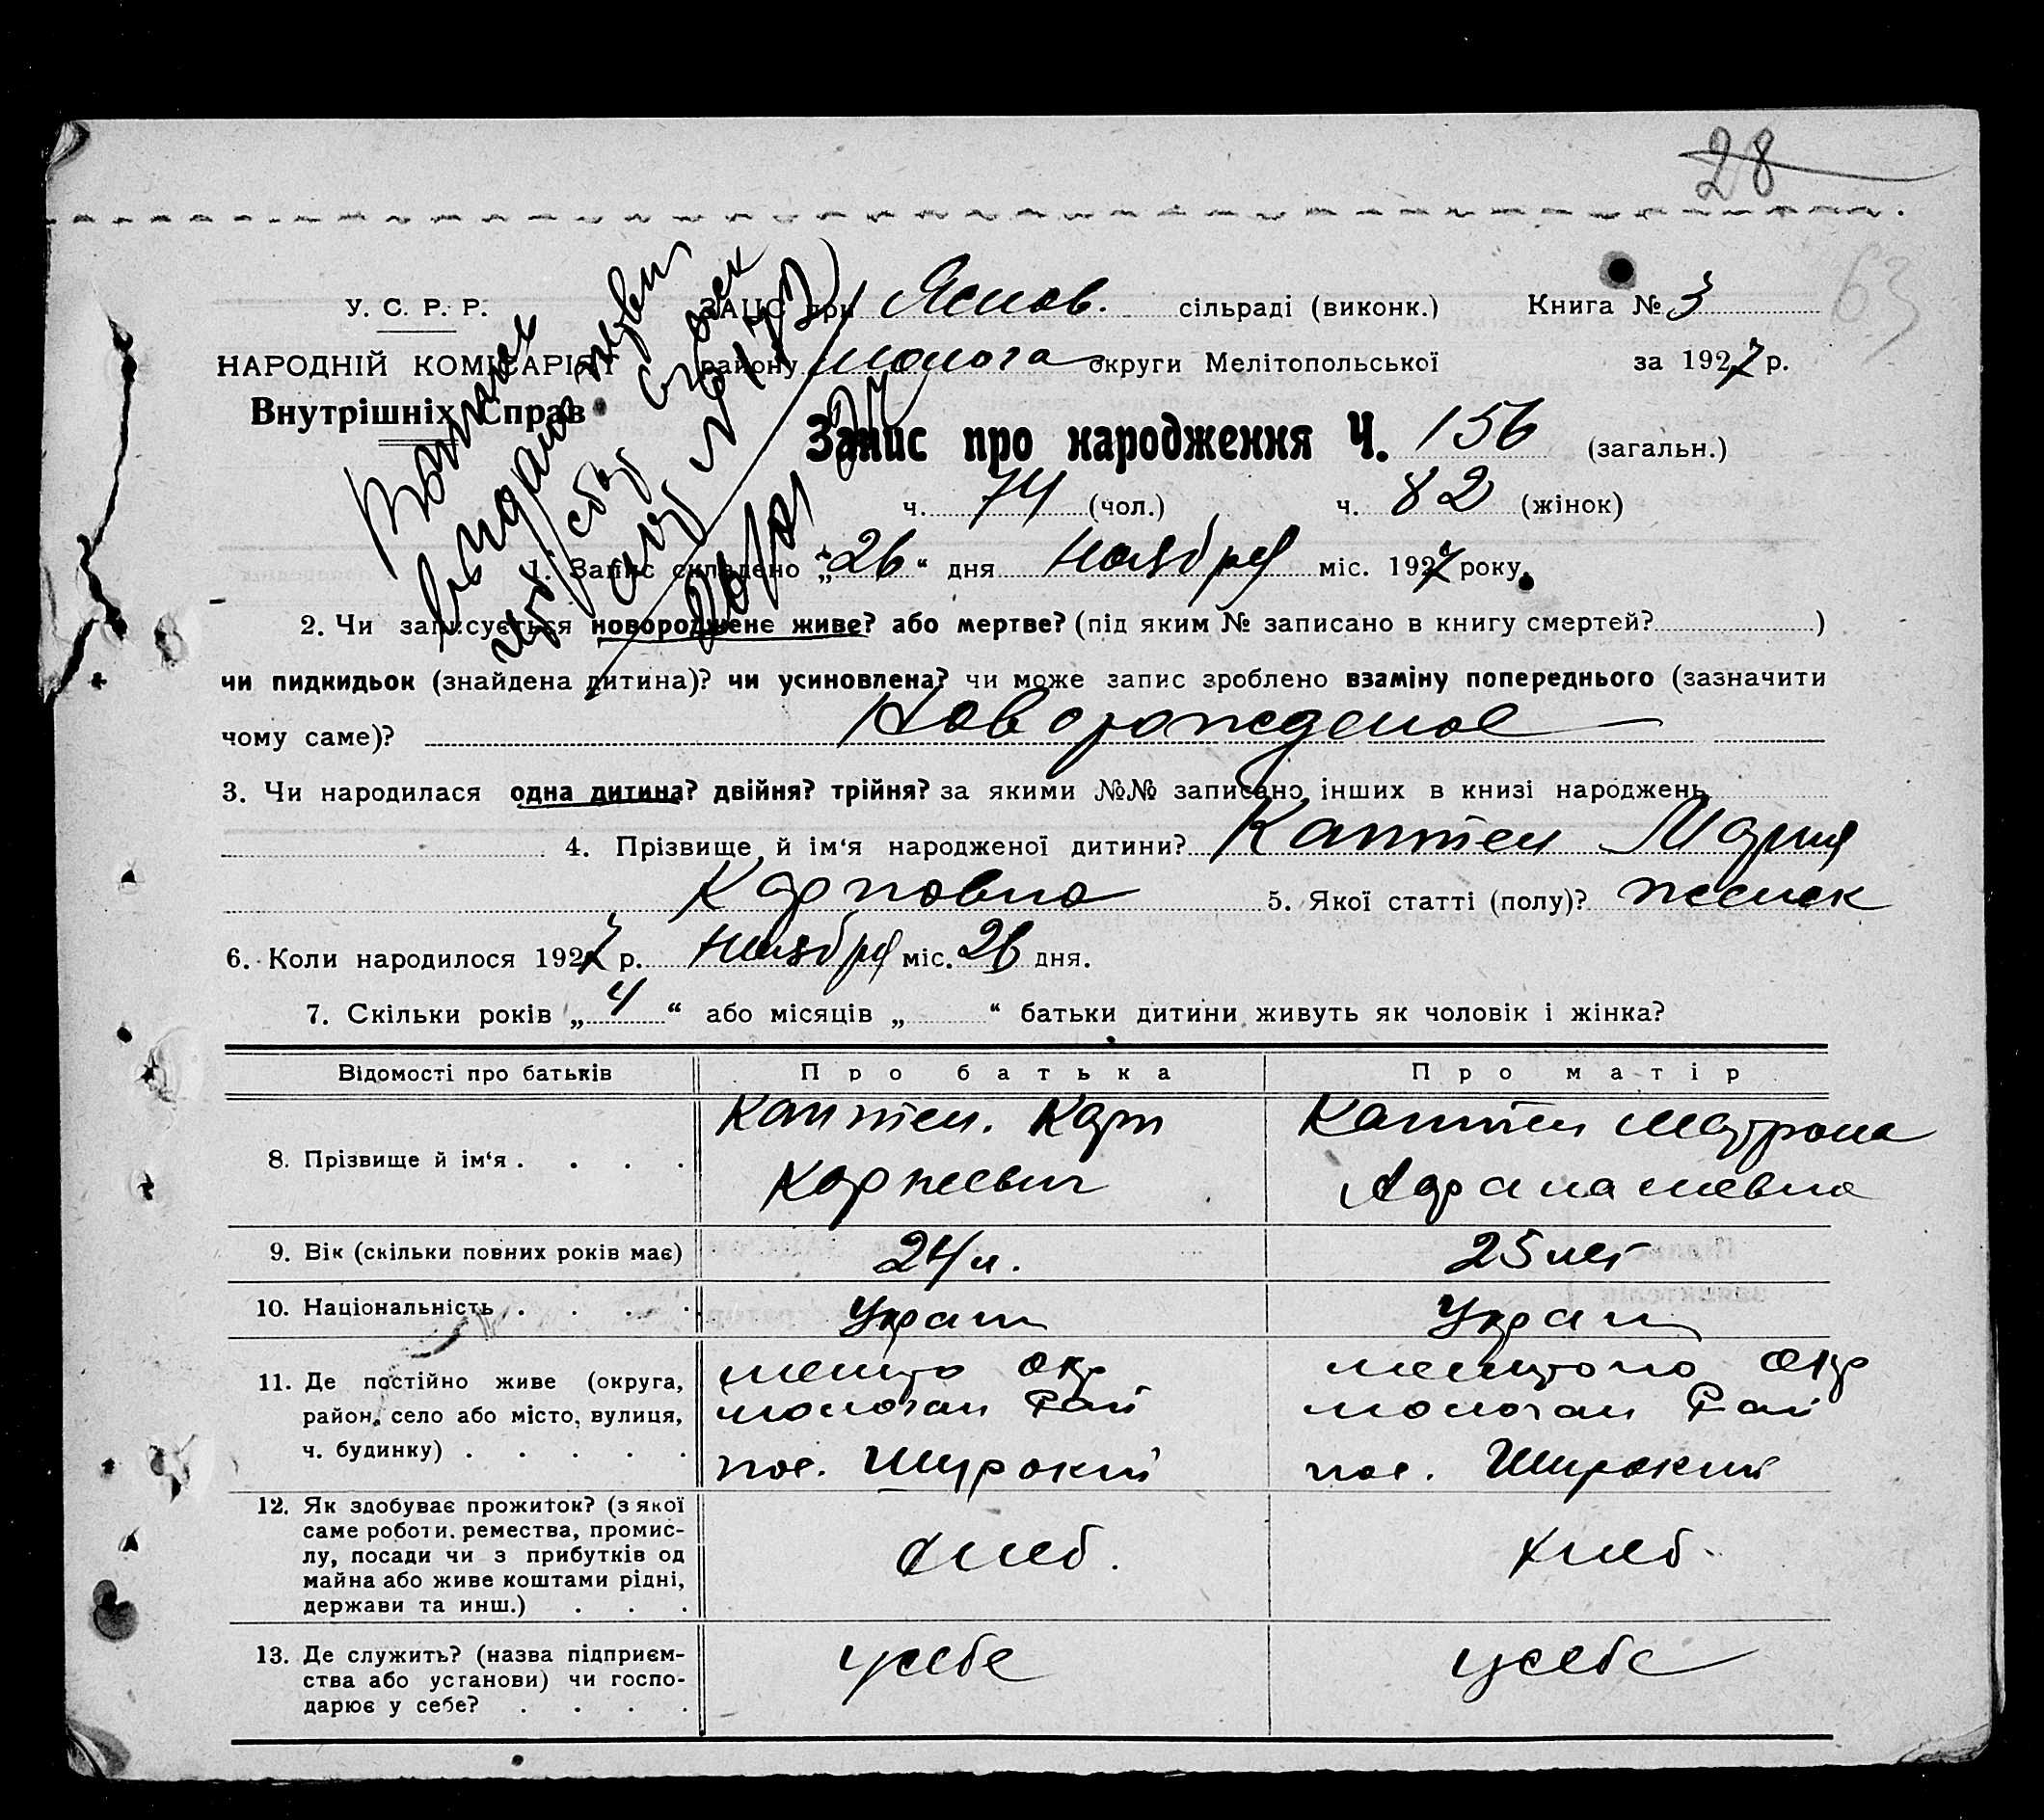 28
63
У. С. Р. Р.
ЗАЦС при Яснов. сільраді (виконк.) Книга № 3
НАРОДНІЙ КОМІСАРІЯТ району Молога округи Мелітопольської за 1927 р.
Внутрішніх Справ
Запис про народження Ч. 156 (загальн.)
ч. 74 (чол.) ч. 82 (жінок)
1. Запис складено „26“ дня Ноября міс. 1927 року.
2. Чи записується новороджене живе? або мертве? (під яким № записано в книгу смертей? )
чи пидкидьок (знайдена дитина)? чи усиновлена? чи може запис зроблено взаміну попереднього (зазначити
чому саме)? Новорожденое
3. Чи народилася одна дитина? двійня? трійня? за якими №№ записано інших в книзі народжень
4. Прізвище й ім‘я народженої дитини? Каптен Мария
Карповна 5. Якої статті (полу)? женск
6. Коли народилося 1927 р. Ноября міс. 26 дня.
7. Скільки років „4“ або місяців „ “ батьки дитини живуть як чоловік і жінка?
Відомості про батьків Про батька Про матір
8. Прізвище й ім‘я . . . . Каптен. Карп Каптен Матрона
Карпевич
9. Вік (скільки повних років має) 24 л. 25 лет
10. Національність . . . . Украин Украин
11. Де постійно живе (округа, мелито окр мелитопо окр
район, село або місто, вулиця, молочан Рай молочан Рай
ч. будинку) . . . . . пос. Широкий пос. Широкий
12. Як здобуває прожиток? (з якої
саме роботи. ремества, промис-
лу, посади чи з прибутків од хлеб. хлеб.
майна або живе коштами рідні,
держави та инш.) . . .
13. Де служить? (назва підприєм- усебе усебе
ства або установи) чи госпо-
дарює у себе? . . . .